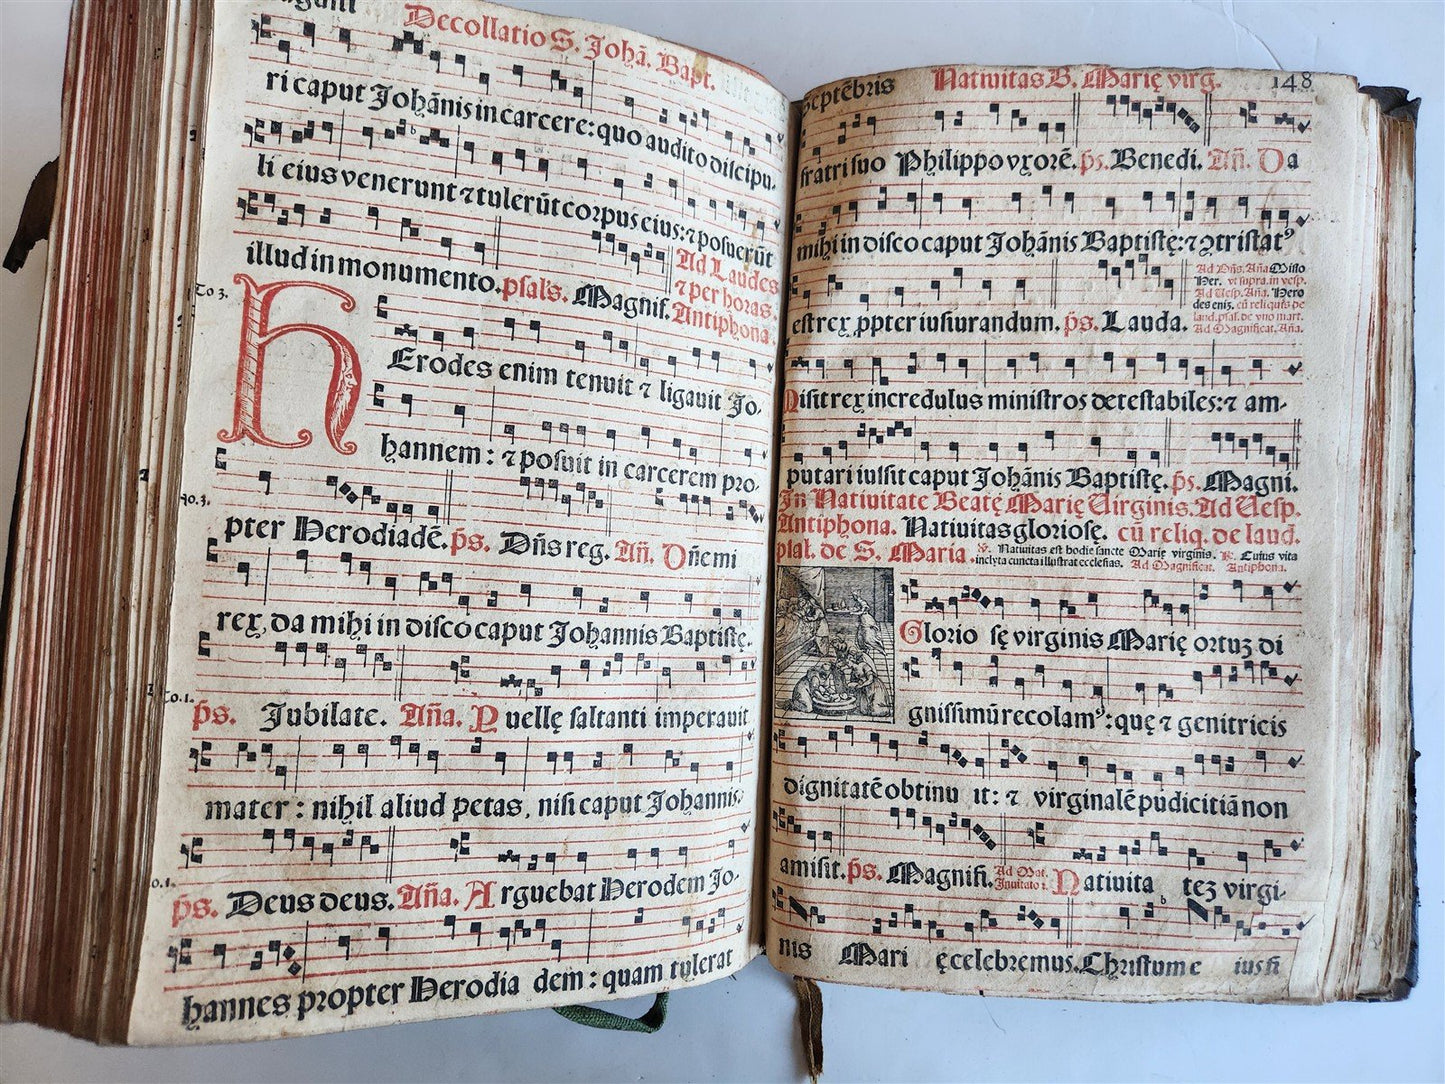 Decollatio S. Johã. Bapt.
ri caput Johãnis in carcere: quo audito discipu-
li eius venerunt ⁊ tulerũt corpus eius: ⁊ posuerũt
illud in monumento. psal's. Magnif.
Ad Laudes
⁊ per horas.
Antiphona.
To 3.
HErodes enim tenuit ⁊ ligauit Jo-
hannem: ⁊ posuit in carcerem pro-
pter Herodiadẽ. p̃s. Dñs reg. Añ. Dñe mi
rex, da mihi in disco caput Johannis Baptistę.
To. 1.
p̃s. Jubilate. Aña. Puellę saltanti imperauit
mater: nihil aliud petas, nisi caput Johannis.
o. 1.
p̃s. Deus deus. Aña. Arguebat Herodem Jo-
hannes propter Herodiadem: quam tulerat
Septẽbris
Natiuitas B. Marię virg.
148
fratri suo Philippo vxorẽ. p̃s. Benedi. Añ. Da
mihi in disco caput Johãnis Baptistę: ⁊ ꝯtristatꝰ
est rex ꝓpter iusiurandum. p̃s. Lauda.
Ad Dñs. Aña Misso
Her. vt supra. in vesp.
Ad Vesp. Aña. Hero
des eni3. cũ reliquis de
laud. psal. de vno mart.
Ad Magnificat. Aña.
Misit rex incredulus ministros detestabiles: ⁊ am-
putari iussit caput Johãnis Baptistę. p̃s. Magni.
In Natiuitate Beatę Marię Virginis. Ad Vesp.
Antiphona. Natiuitas gloriosę. cũ reliq. de laud.
psal. de S. Maria.
℣. Natiuitas est hodie sancte Marię virginis. ℟. Cuius vita
inclyta cuncta illustrat ecclesias. Ad Magnificat. Antiphona.
Gloriosę virginis Marię ortu3 di
gnissimũ recolamꝰ: quę ⁊ genitricis
dignitatẽ obtinuit: ⁊ virginalẽ pudicitiã non
amisit. p̃s. Magnifi.
Ad Mat.
Inuitato 1.
Natiuitate3 virgi-
nis Marię celebremus. Christum eius fi